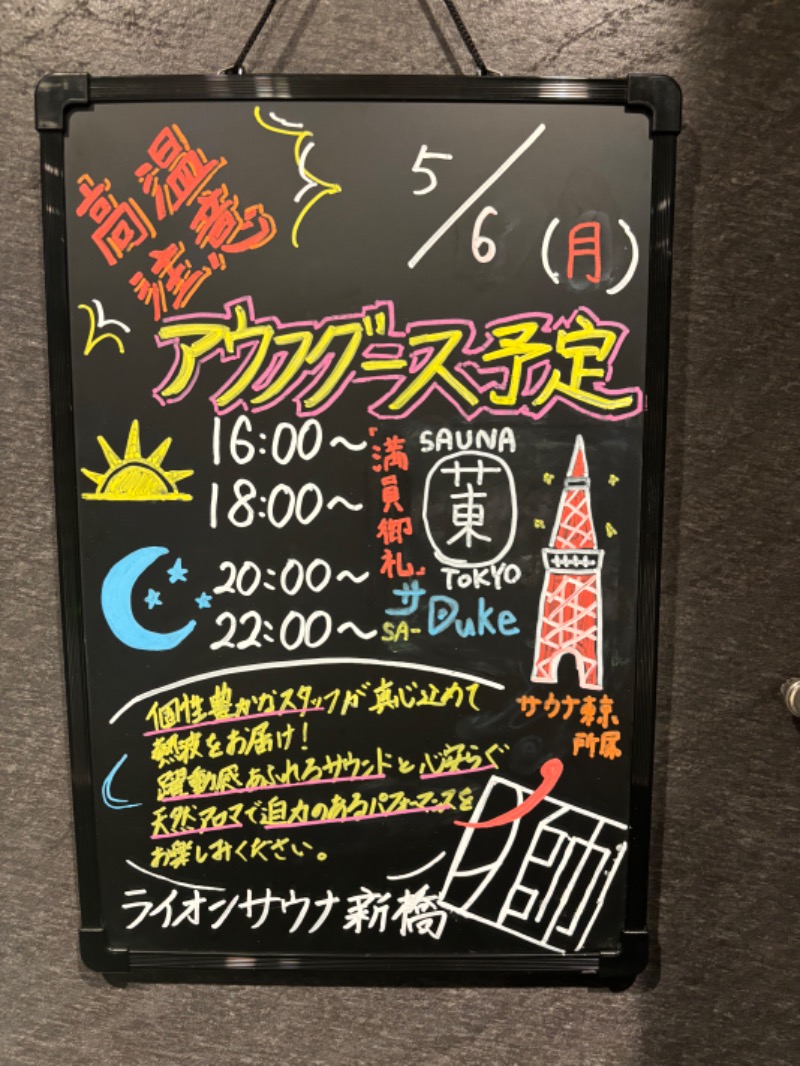 高温
注意
5/6(月)
アウフグース予定
16:00～
18:00～
20:00～
22:00～
「満員御礼」
SAUNA
東
TOKYO
サ
SA-Duke
サウナ東京
所属
個性豊かなスタッフが真心込めて
熱波をお届け!
躍動感あふれるサウンドと心安らぐ
天然アロマで迫力のあるパフォーマンスを
お楽しみください。
師
ライオンサウナ新橋